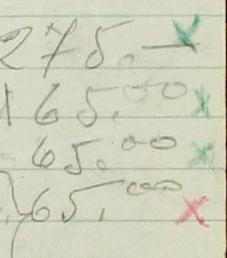 275.—
165.00
65.00
65.00